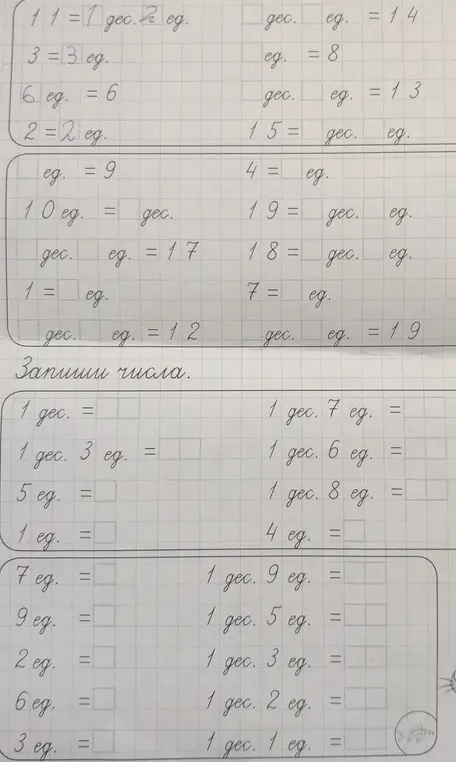 11 = 1 дес. 2 ед. дес. ед. = 14
3 = 3 ед. ед. = 8
6 ед. = 6 дес. ед. = 13
2 = 2 ед. 15 = дес. ед.
ед. = 9 4 = ед.
10 ед. = дес. 19 = дес. ед.
дес. ед. = 17 18 = дес. ед.
1 = ед. 7 = ед.
дес. ед. = 12 дес. ед. = 19
Запиши числа.
1 дес. = 1 дес. 7 ед. =
1 дес. 3 ед. = 1 дес. 6 ед. =
5 ед. = 1 дес. 8 ед. =
1 ед. = 4 ед. =
7 ед. = 1 дес. 9 ед. =
9 ед. = 1 дес. 5 ед. =
2 ед. = 1 дес. 3 ед. =
6 ед. = 1 дес. 2 ед. =
3 ед. = 1 дес. 1 ед. =